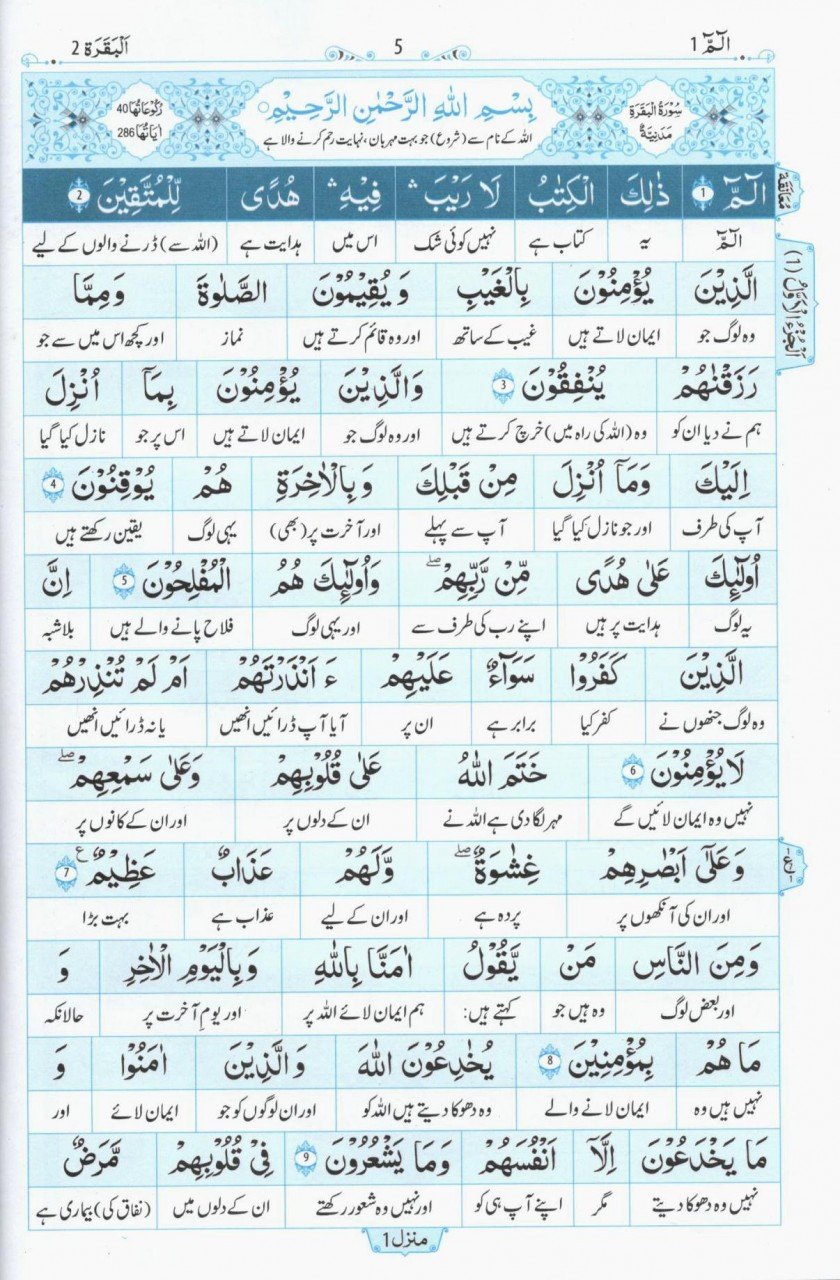 الٓمّٓ 1 5 اَلْبَقَرَة 2
سُوْرَةُ الْبَقَرَةِ مَدَنِيَّةٌ بِسْمِ اللّٰهِ الرَّحْمٰنِ الرَّحِيْمِ رُكُوْعَاتُهَا 40 اٰيَاتُهَا 286
اللہ کے نام سے (شروع) جو بہت مہربان، نہایت رحم کرنے والا ہے
مُعَانَقَة
الٓمّٓ 1 ذٰلِكَ الْكِتٰبُ لَا رَيْبَ ۛ فِيْهِ ۛ هُدًى لِّلْمُتَّقِيْنَ 2
الٓمّٓ یہ کتاب ہے نہیں کوئی شک اس میں ہدایت ہے (اللہ سے) ڈرنے والوں کے لیے
اَلْجُزْءُ الْاَوَّلُ (1)
الَّذِيْنَ يُؤْمِنُوْنَ بِالْغَيْبِ وَ يُقِيْمُوْنَ الصَّلٰوةَ وَ مِمَّا
وہ لوگ جو ایمان لاتے ہیں غیب کے ساتھ اور وہ قائم کرتے ہیں نماز اور کچھ اس میں سے جو
رَزَقْنٰهُمْ يُنْفِقُوْنَ 3 وَالَّذِيْنَ يُؤْمِنُوْنَ بِمَآ اُنْزِلَ
ہم نے دیا ان کو وہ (اللہ کی راہ میں) خرچ کرتے ہیں اور وہ لوگ جو ایمان لاتے ہیں اس پر جو نازل کیا گیا
اِلَيْكَ وَمَآ اُنْزِلَ مِنْ قَبْلِكَ وَ بِالْاٰخِرَةِ هُمْ يُوْقِنُوْنَ 4
آپ کی طرف اور جو نازل کیا گیا آپ سے پہلے اور آخرت پر (بھی) یہی لوگ یقین رکھتے ہیں
اُولٰٓئِكَ عَلٰى هُدًى مِّنْ رَّبِّهِمْ ۖ وَاُولٰٓئِكَ هُمُ الْمُفْلِحُوْنَ 5 اِنَّ
یہ لوگ ہدایت پر ہیں اپنے رب کی طرف سے اور یہی لوگ فلاح پانے والے ہیں بلاشبہ
الَّذِيْنَ كَفَرُوْا سَوَآءٌ عَلَيْهِمْ ءَ اَنْذَرْتَهُمْ اَمْ لَمْ تُنْذِرْهُمْ
وہ لوگ جنھوں نے کفر کیا برابر ہے ان پر آیا آپ ڈرائیں انھیں یا نہ ڈرائیں انھیں
لَا يُؤْمِنُوْنَ 6 خَتَمَ اللّٰهُ عَلٰى قُلُوْبِهِمْ وَعَلٰى سَمْعِهِمْ ۖ
نہیں وہ ایمان لائیں گے مہر لگا دی ہے اللہ نے ان کے دلوں پر اور ان کے کانوں پر
وَ عَلٰٓى اَبْصَارِهِمْ غِشٰوَةٌ ۖ وَّلَهُمْ عَذَابٌ عَظِيْمٌ ع 7
اور ان کی آنکھوں پر پردہ ہے اور ان کے لیے عذاب ہے بہت بڑا
وَ مِنَ النَّاسِ مَنْ يَّقُوْلُ اٰمَنَّا بِاللّٰهِ وَ بِالْيَوْمِ الْاٰخِرِ وَ
اور بعض لوگ وہ ہیں جو کہتے ہیں: ہم ایمان لائے اللہ پر اور یومِ آخرت پر حالانکہ
مَا هُمْ بِمُؤْمِنِيْنَ 8 يُخٰدِعُوْنَ اللّٰهَ وَ الَّذِيْنَ اٰمَنُوْا وَ
نہیں ہیں وہ ایمان لانے والے وہ دھوکا دیتے ہیں اللہ کو اور ان لوگوں کو جو ایمان لائے اور
مَا يَخْدَعُوْنَ اِلَّآ اَنْفُسَهُمْ وَمَا يَشْعُرُوْنَ 9 فِيْ قُلُوْبِهِمْ مَّرَضٌ
نہیں وہ دھوکا دیتے مگر اپنے آپ ہی کو اور نہیں وہ شعور رکھتے ان کے دلوں میں (نفاق کی) بیماری ہے
منزل 1